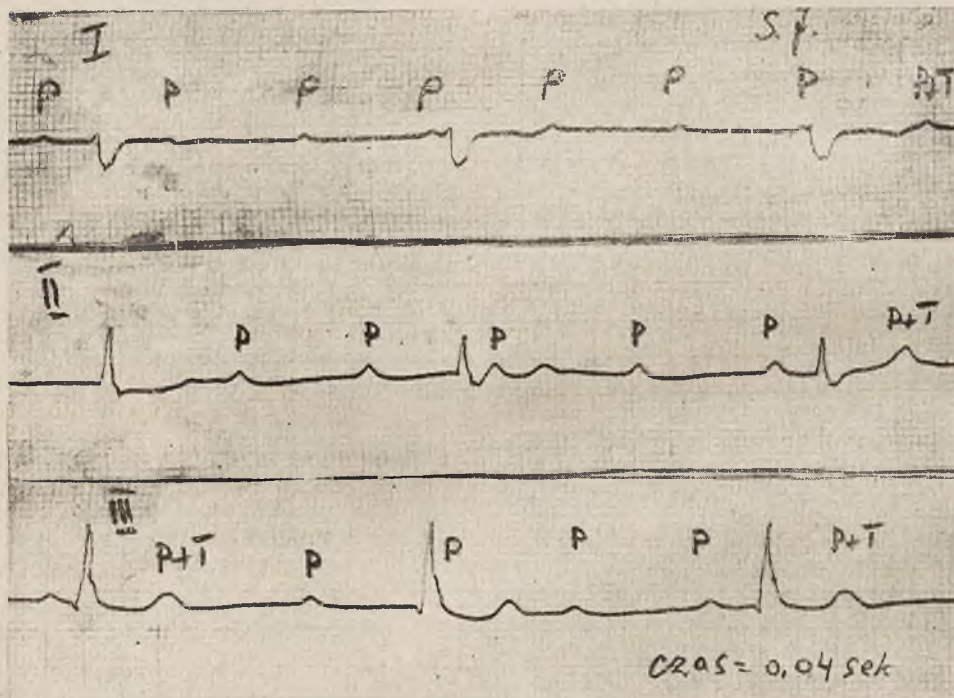 I S.J.
P P P P P P P P+T
II
P P P P P P+T
III
P+T P P P P P+T
czas = 0,04 sek